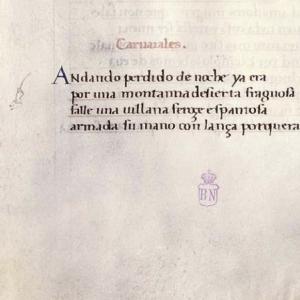 Caruaiales.
Andando perdido de noche ya era
por una montanna desierta fragosa
falle una uillana feroçe espantosa
armada su mano con lança porquera
BN